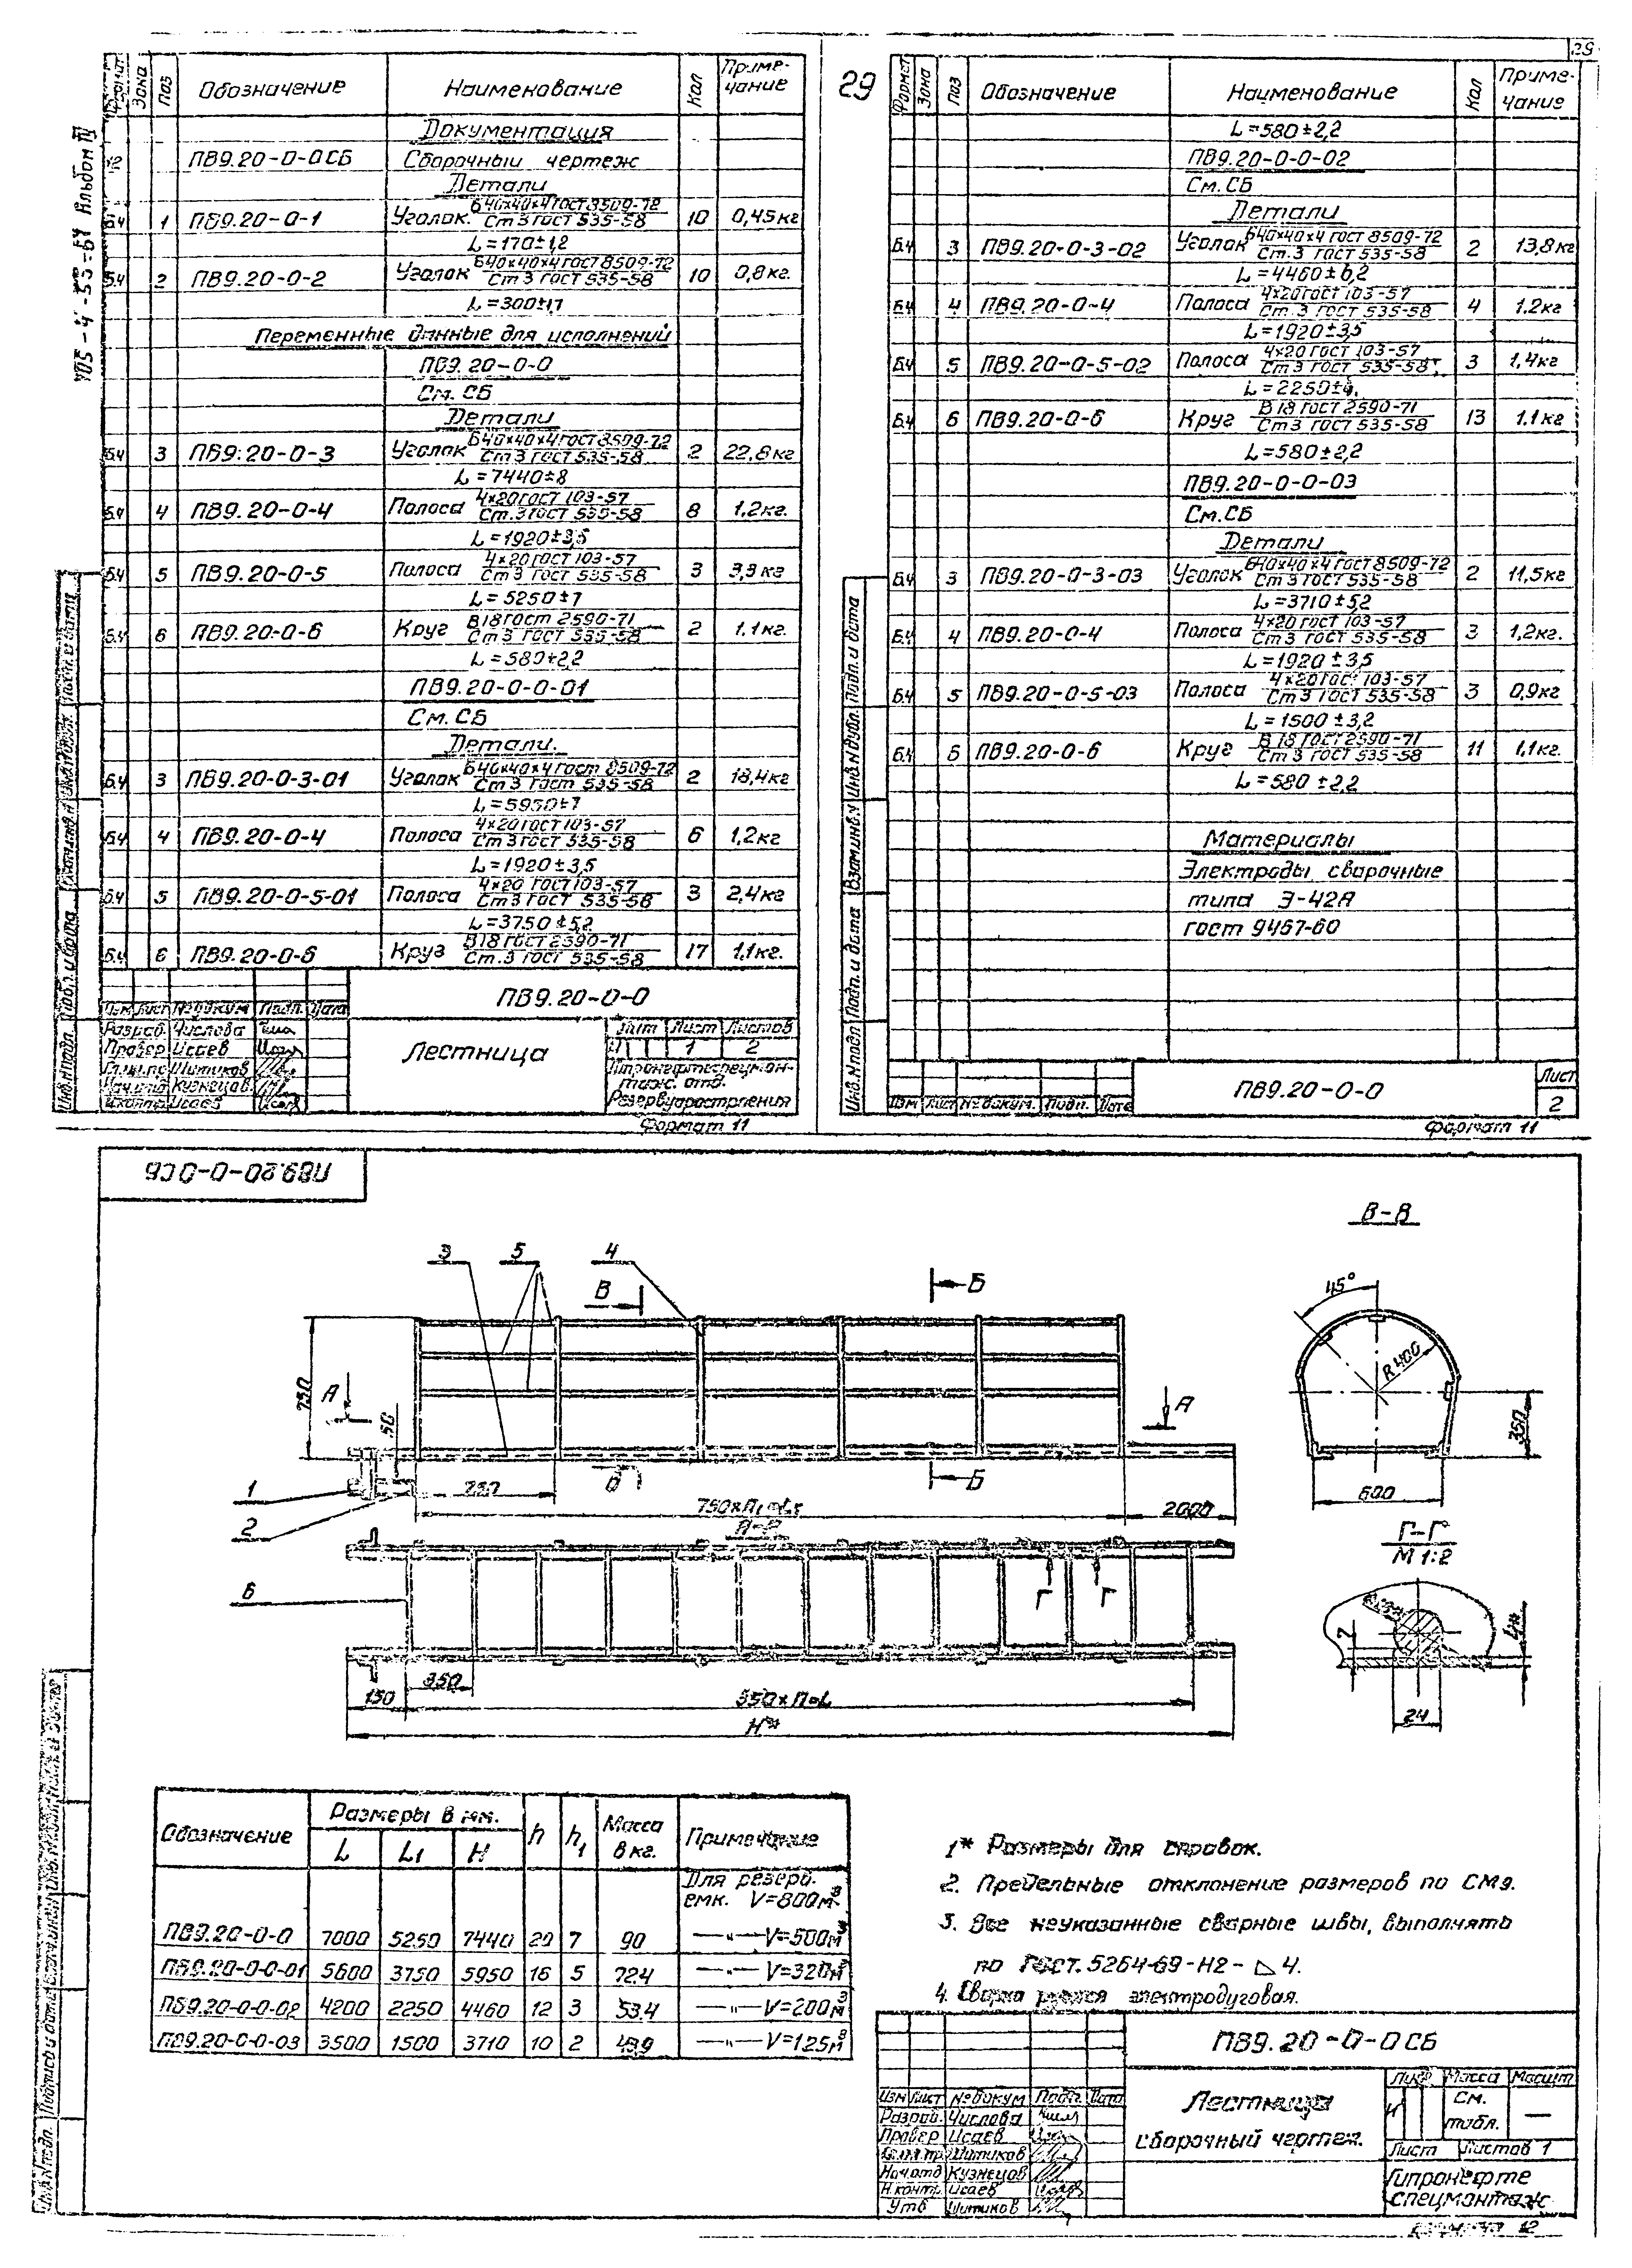 29
705-4-53-84 Альбом IV
Формат Зона Поз Обозначение Наименование Кол Примечание
Документация
12 ПВ9.20-0-0СБ Сборочный чертеж
Детали
Б.ч 1 ПВ9.20-0-1 Уголок Б40х40х4 ГОСТ 8509-72 / Ст 3 ГОСТ 535-58 10 0,45кг
L=170±1,2
Б.ч 2 ПВ9.20-0-2 Уголок Б40х40х4 ГОСТ 8509-72 / Ст 3 ГОСТ 535-58 10 0,8кг.
L=300±1,7
Переменные данные для исполнений
ПВ9.20-0-0
См. СБ
Детали
Б.ч 3 ПВ9.20-0-3 Уголок Б40х40х4 ГОСТ 8509-72 / Ст 3 ГОСТ 535-58 2 22,8кг
L=7440±8
Б.ч 4 ПВ9.20-0-4 Полоса 4х20 ГОСТ 103-57 / Ст.3 ГОСТ 535-58 8 1,2кг.
L=1920±3,5
Б.ч 5 ПВ9.20-0-5 Полоса 4х20 ГОСТ 103-57 / Ст 3 ГОСТ 535-58 3 3,3кг
L=5250±7
Б.ч 6 ПВ9.20-0-6 Круг В18 ГОСТ 2590-71 / Ст 3 ГОСТ 535-58 2 1.1кг.
L=580±2,2
ПВ9.20-0-0-01
См. СБ
Детали.
Б.ч 3 ПВ9.20-0-3-01 Уголок Б40х40х4 ГОСТ 8509-72 / Ст 3 ГОСТ 535-58 2 18,4кг
L=5950±7
Б.ч 4 ПВ9.20-0-4 Полоса 4х20 ГОСТ 103-57 / Ст 3 ГОСТ 535-58 6 1,2кг
L=1920±3,5
Б.ч 5 ПВ9.20-0-5-01 Полоса 4х20 ГОСТ 103-57 / Ст 3 ГОСТ 535-58 3 2,4кг
L=3750±5,2
Б.ч 6 ПВ9.20-0-6 Круг В18 ГОСТ 2590-71 / Ст.3 ГОСТ 535-58 17 1,1кг.
ПВ9.20-0-0
Изм Лист № докум Подп. Дата
Разраб. Числова
Провер Исаев
Гл.инж.пр Шитиков
Нач.отд Кузнецов
Н.контр Исаев
Лестница
Лит Лист Листов
И 1 2
Гипронефтеспецмон-
таж. отд.
Резервуаростроения
Формат 11
Инв.№подл. Подп. и дата Взам.инв.№ Инв.№дубл. Подп. и дата
29
Формат Зона Поз Обозначение Наименование Кол Примечание
L=580±2,2
ПВ9.20-0-0-02
См. СБ
Детали
Б.ч 3 ПВ9.20-0-3-02 Уголок Б40х40х4 ГОСТ 8509-72 / Ст.3 ГОСТ 535-58 2 13,8кг
L=4460±6,2
Б.ч 4 ПВ9.20-0-4 Полоса 4х20 ГОСТ 103-57 / Ст.3 ГОСТ 535-58 4 1.2кг
L=1920±3,5
Б.ч 5 ПВ9.20-0-5-02 Полоса 4х20 ГОСТ 103-57 / Ст 3 ГОСТ 535-58 3 1,4кг
L=2250±4,
Б.ч 6 ПВ9.20-0-6 Круг В18 ГОСТ 2590-71 / Ст 3 ГОСТ 535-58 13 1.1кг
L=580±2,2
ПВ9.20-0-0-03
См. СБ
Детали
Б.ч 3 ПВ9.20-0-3-03 Уголок Б40х40х4 ГОСТ 8509-72 / Ст 3 ГОСТ 535-58 2 11,5кг
L=3710±5,2
Б.ч 4 ПВ9.20-0-4 Полоса 4х20 ГОСТ 103-57 / Ст 3 ГОСТ 535-58 3 1,2кг.
L=1920±3,5
Б.ч 5 ПВ9.20-0-5-03 Полоса 4х20 ГОСТ 103-57 / Ст 3 ГОСТ 535-58 3 0,9кг
L=1500±3,2
Б.ч 6 ПВ9.20-0-6 Круг В18 ГОСТ 2590-71 / Ст 3 ГОСТ 535-58 11 1,1кг.
L=580±2,2
Материалы
Электроды сварочные
типа Э-42А
ГОСТ 9467-60
Изм Лист № докум. Подп. Дата
ПВ9.20-0-0
Лист
2
Формат 11
Инв.№подл Подп. и дата Взам.инв.№ Инв.№дубл. Подп. и дата
ПВ9.20-0-0СБ
В-В
3 5 4
В
Б
45°
R400
750
А
А
50
350
1
2
Б
750×n₁=L₁
2000
600
А-А
Г-Г
М 1:2
6
Г Г
350
150
350×n=L
H*
2
4*
24
Обозначение Размеры в мм. h h₁ Масса в кг. Примечание
L L₁ H
Для резерв.
емк. V=800м³
ПВ9.20-0-0 7000 5250 7440 20 7 90 —"— V=500м³
ПВ9.20-0-0-01 5600 3750 5950 16 5 72.4 —"— V=320м³
ПВ9.20-0-0-02 4200 2250 4460 12 3 53.4 —"— V=200м³
ПВ9.20-0-0-03 3500 1500 3710 10 2 —"— V=125м³
1* Размеры для справок.
2. Предельные отклонение размеров по СМ9.
3. Все неуказанные сварные швы, выполнять
по ГОСТ. 5264-69-Н2-◺4.
4. Сварка ручная электродуговая.
ПВ9.20-0-0СБ
Изм Лист № докум Подп. Дата
Разраб. Числова
Провер Исаев
Гл.инж.пр. Шитиков
Нач.отд Кузнецов
Н.контр. Исаев
Утв Шитиков
Лестница
сборочный чертеж.
Лит Масса Масшт
И см. табл. —
Лист Листов 1
Гипронефте
спецмонтаж
Формат 12